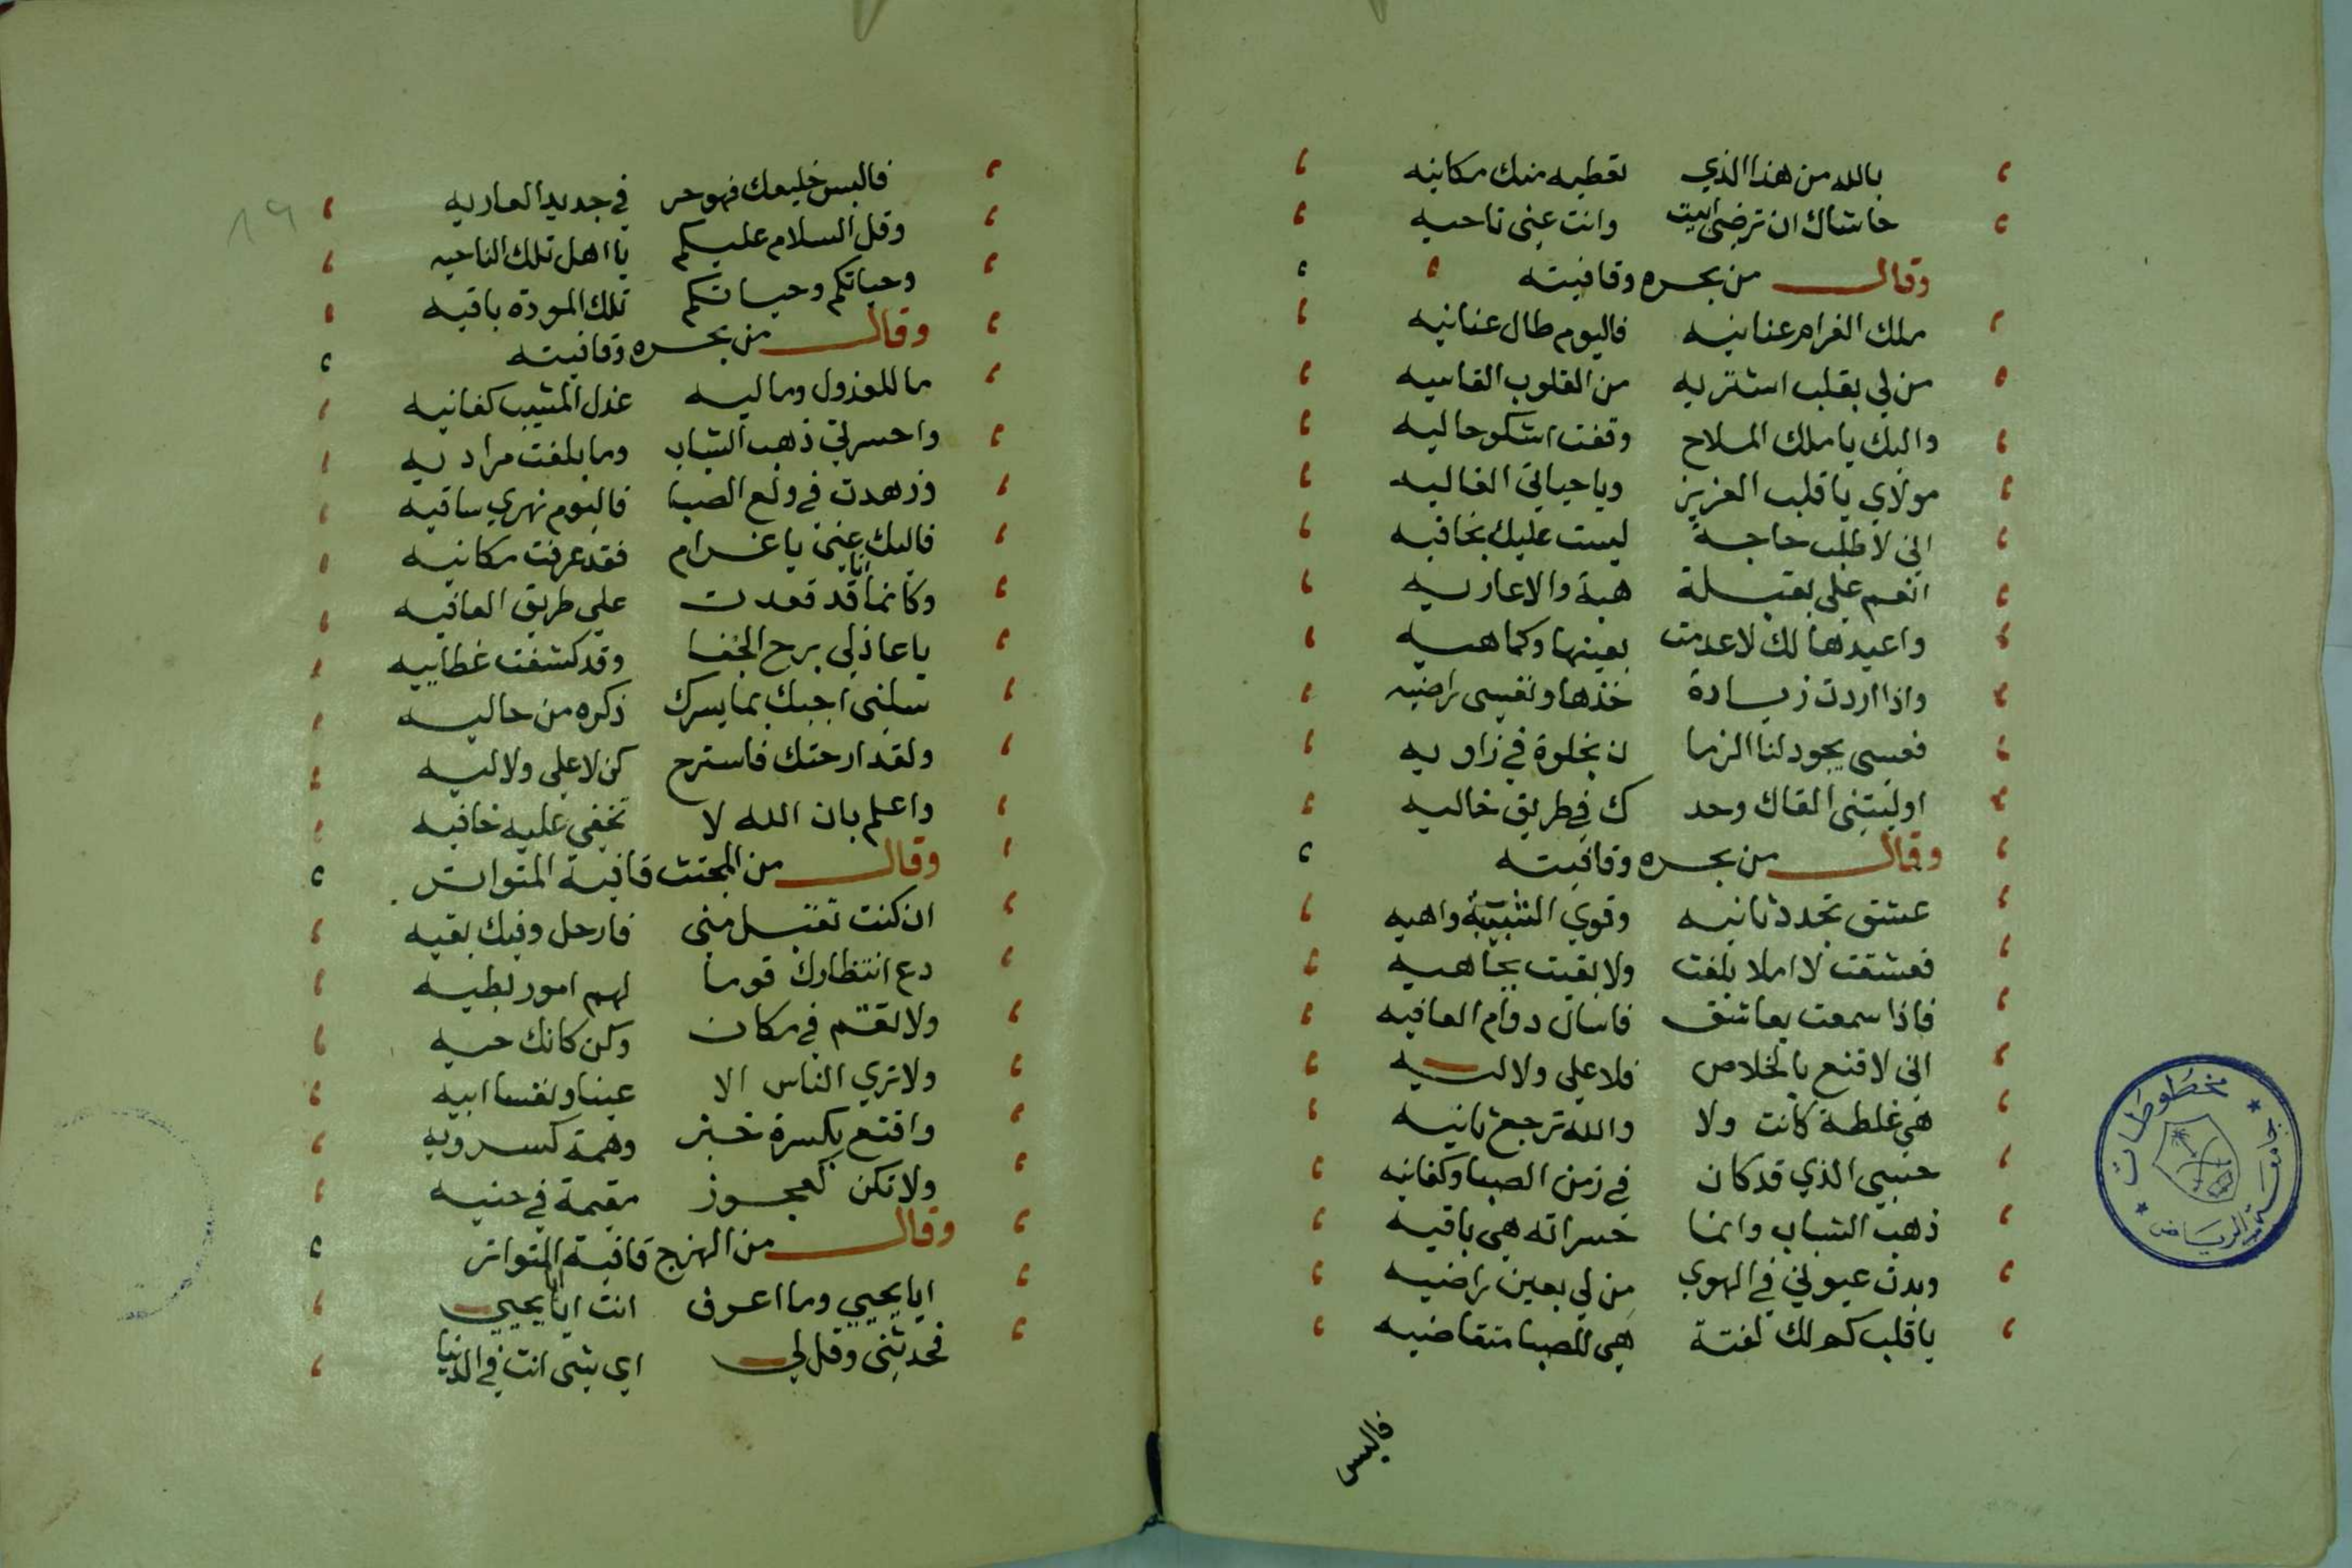 بالله من هذا الذي تعطيه منك مكانيه
حاشاك ان ترضى ابيت وانت عني ناحيه
وقال من بحره وقافيته
ملك الغرام عنانيه فاليوم طال عنانيه
من لي بقلب اشتريه من القلوب القاسيه
واليك يا ملك الملاح وقفت اشكو حاليه
مولاي يا قلب العزيز ويا حياتي الغاليه
اني لاطلب حاجة ليست عليك بخافيه
انعم علي بقبلة هبة والا عاريه
واعيدها لك لا عدمت بعينها وكماهيه
واذا اردت زيادة خذها ونفسي راضيه
فعسى يجود لنا الزما ن بخلوة في زاويه
اوليتني القاك وحد ك في طريق خاليه
وقال من بحره وقافيته
عشق تجدد ثانيه وقوي الشبيبة واهيه
فعشقت لا املا بلغت ولا لقيت بجاهيه
فاذا سمعت بعاشق فاسال دوام العافيه
اني لاقنع بالخلاص فلا علي ولا ليه
هي غلطة كانت ولا والله ترجع ثانيه
حسبي الذي قد كان في زمن الصبا وكفانيه
ذهب الشباب وانما حسراته هي باقيه
وبدت عيوني في الهوي من لي بعين راضيه
يا قلب كم لك لفتة هي للصبا متقاضيه
فالبس
١٩
فالبس خليعك فهو حر في جديد العاريه
وقل السلام عليكم يا اهل تلك الناحيه
وحياتكم وحياتكم تلك المودة باقيه
وقال من بحره وقافيته
ما للعذول وماليه عذل المشيب كفانيه
واحسرتي ذهب الشباب وما بلغت مراديه
وزهدت في ولع الصبا فاليوم نهري ساقيه
فاليك عني يا غرام فقد عرفت مكانيه
وكانما انا قد قعدت علي طريق العافيه
يا عاذلي برح الخفا وقد كشفت غطاييه
سلني اجبك بما يسرك ذكره من حاليه
ولقد ارحتك فاسترح كن لا علي ولا ليه
واعلم بان الله لا تخفي عليه خافيه
وقال من المجتث قافية المتواتر
ان كنت تقبل مني فارحل وفيك بقيه
دع انتظارك قوما لهم امور بطيه
ولا تقم في مكان وكن كانك حيه
ولا تري الناس الا عينا ونفسا ابيه
واقنع بكسرة خبز وهمة كسرويه
ولا تكن كعجوز مقيمة في حنيه
وقال من الهزج قافية المتواتر
ايا يحيي وما اعرف انت ايا يحيي
فحدثني وقل لي اي شي انت في الدنيا
مخطوطات
جامعة الرياض